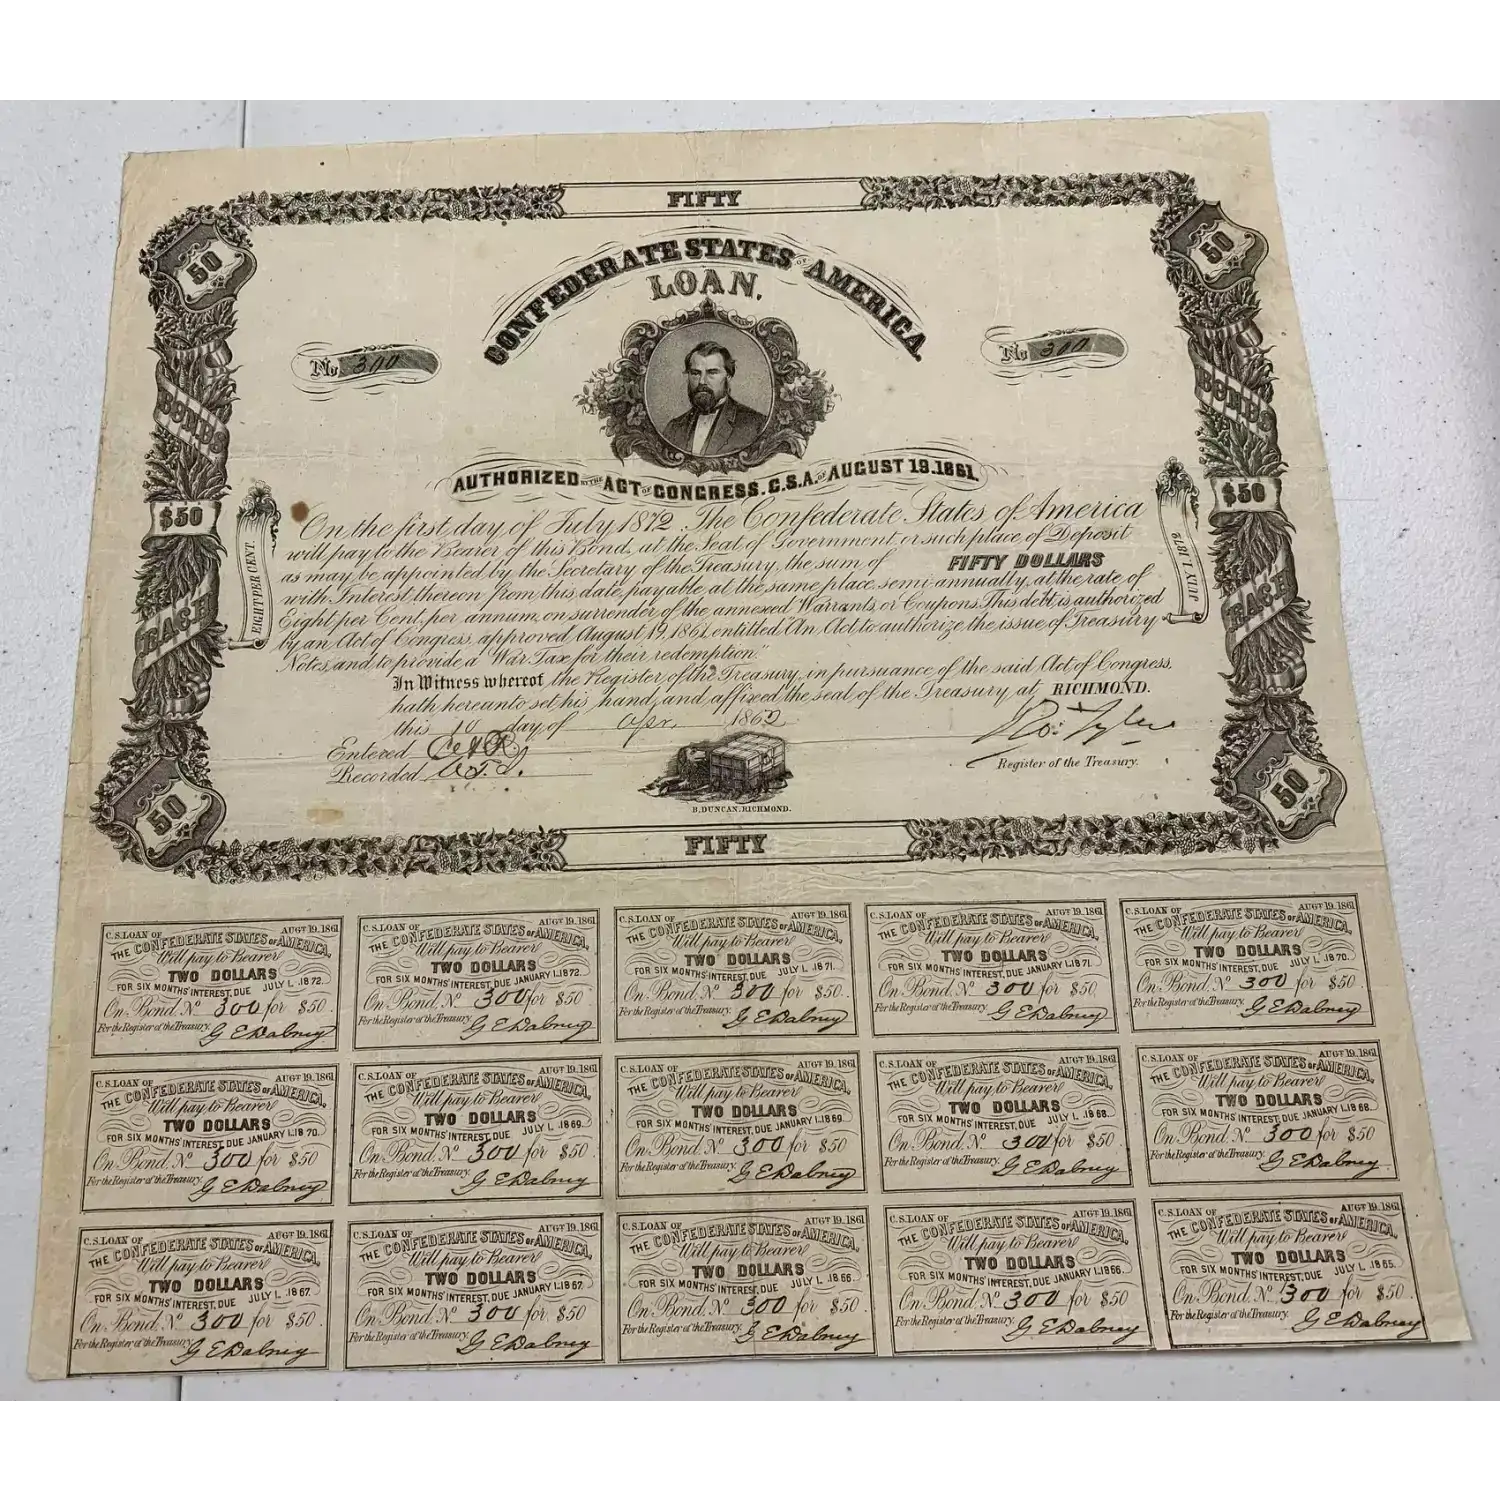 FIFTY
50
50
CONFEDERATE STATES OF AMERICA.
LOAN.
No 300
No 300
AUTHORIZED BY THE ACT OF CONGRESS. C.S.A. OF AUGUST 19.1861.
BONDS
BONDS
$50
$50
EACH
EACH
EIGHT PER CENT.
JULY 1, 1872
On the first day of July 1872. The Confederate States of America
will pay to the Bearer of this Bond, at the Seat of Government, or such place of Deposit
as may be appointed by the Secretary of the Treasury, the sum of FIFTY DOLLARS
with Interest thereon from this date, payable at the same place, semi-annually, at the rate of
Eight per Cent. per annum, on surrender of the annexed Warrants, or Coupons. This debt, is authorized
by an Act of Congress, approved August 19, 1861, entitled "An Act to authorize the issue of Treasury
Notes, and to provide a War Tax for their redemption."
In Witness whereof the Register of the Treasury, in pursuance of the said Act of Congress,
hath hereunto set his hand, and affixed the seal of the Treasury, at RICHMOND.
this 10 day of apr. 1862
Entered
Recorded
Ro: Tyler
Register of the Treasury.
B. DUNCAN. RICHMOND.
50
50
FIFTY
C.S. LOAN OF AUGT 19. 1861
THE CONFEDERATE STATES OF AMERICA,
Will pay to Bearer
TWO DOLLARS
FOR SIX MONTHS' INTEREST, DUE JULY 1. 1872.
On Bond. No 300 for $50.
For the Register of the Treasury. G E Dabney
C.S. LOAN OF AUGT 19. 1861
THE CONFEDERATE STATES OF AMERICA,
Will pay to Bearer
TWO DOLLARS
FOR SIX MONTHS' INTEREST, DUE JANUARY 1. 1872.
On Bond. No 300 for $50.
For the Register of the Treasury. G E Dabney
C.S. LOAN OF AUGT 19. 1861
THE CONFEDERATE STATES OF AMERICA,
Will pay to Bearer
TWO DOLLARS
FOR SIX MONTHS' INTEREST, DUE JULY 1. 1871.
On Bond. No 300 for $50.
For the Register of the Treasury. G E Dabney
C.S. LOAN OF AUGT 19. 1861
THE CONFEDERATE STATES OF AMERICA,
Will pay to Bearer
TWO DOLLARS
FOR SIX MONTHS' INTEREST, DUE JANUARY 1. 1871.
On Bond. No 300 for $50.
For the Register of the Treasury. G E Dabney
C.S. LOAN OF AUGT 19. 1861
THE CONFEDERATE STATES OF AMERICA,
Will pay to Bearer
TWO DOLLARS
FOR SIX MONTHS' INTEREST, DUE JULY 1. 1870.
On Bond. No 300 for $50.
For the Register of the Treasury. G E Dabney
C.S. LOAN OF AUGT 19. 1861
THE CONFEDERATE STATES OF AMERICA,
Will pay to Bearer
TWO DOLLARS
FOR SIX MONTHS' INTEREST, DUE JANUARY 1. 1870.
On Bond. No 300 for $50
For the Register of the Treasury. G E Dabney
C.S. LOAN OF AUGT 19. 1861
THE CONFEDERATE STATES OF AMERICA,
Will pay to Bearer
TWO DOLLARS
FOR SIX MONTHS' INTEREST, DUE JULY 1. 1869.
On Bond. No 300 for $50.
For the Register of the Treasury. G E Dabney
C.S. LOAN OF AUGT 19. 1861
THE CONFEDERATE STATES OF AMERICA,
Will pay to Bearer
TWO DOLLARS
FOR SIX MONTHS' INTEREST, DUE JANUARY 1. 1869.
On Bond. No 300 for $50
For the Register of the Treasury. G E Dabney
C.S. LOAN OF AUGT 19. 1861
THE CONFEDERATE STATES OF AMERICA,
Will pay to Bearer
TWO DOLLARS
FOR SIX MONTHS' INTEREST, DUE JULY 1. 1868.
On Bond. No 300 for $50.
For the Register of the Treasury. G E Dabney
C.S. LOAN OF AUGT 19. 1861
THE CONFEDERATE STATES OF AMERICA,
Will pay to Bearer
TWO DOLLARS
FOR SIX MONTHS' INTEREST, DUE JANUARY 1. 1868.
On Bond. No 300 for $50
For the Register of the Treasury. G E Dabney
C.S. LOAN OF AUGT 19. 1861
THE CONFEDERATE STATES OF AMERICA,
Will pay to Bearer
TWO DOLLARS
FOR SIX MONTHS' INTEREST, DUE JULY 1. 1867.
On Bond. No 300 for $50.
For the Register of the Treasury. G E Dabney
C.S. LOAN OF AUGT 19. 1861
THE CONFEDERATE STATES OF AMERICA,
Will pay to Bearer
TWO DOLLARS
FOR SIX MONTHS' INTEREST, DUE JANUARY 1. 1867.
On Bond. No 300 for $50
For the Register of the Treasury. G E Dabney
C.S. LOAN OF AUGT 19. 1861
THE CONFEDERATE STATES OF AMERICA,
Will pay to Bearer
TWO DOLLARS
FOR SIX MONTHS' INTEREST, DUE JULY 1. 1866.
On Bond. No 300 for $50.
For the Register of the Treasury. G E Dabney
C.S. LOAN OF AUGT 19. 1861
THE CONFEDERATE STATES OF AMERICA,
Will pay to Bearer
TWO DOLLARS
FOR SIX MONTHS' INTEREST, DUE JANUARY 1. 1866.
On Bond. No 300 for $50.
For the Register of the Treasury. G E Dabney
C.S. LOAN OF AUGT 19. 1861
THE CONFEDERATE STATES OF AMERICA,
Will pay to Bearer
TWO DOLLARS
FOR SIX MONTHS' INTEREST, DUE JULY 1. 1865.
On Bond. No 300 for $50.
For the Register of the Treasury. G E Dabney